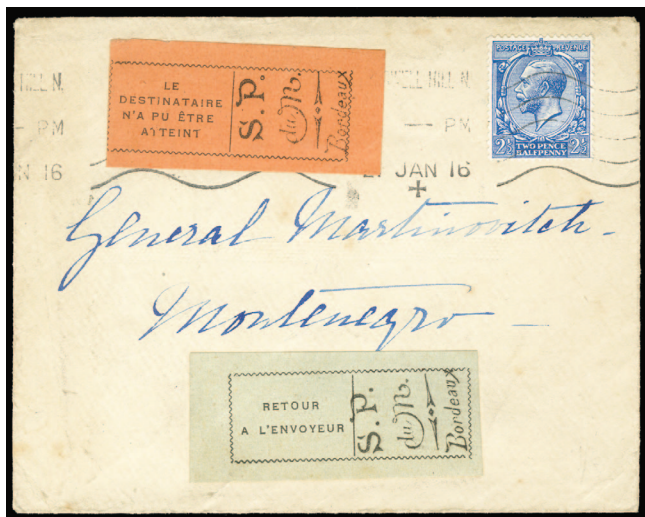 LE
DESTINATAIRE
N'A PU ÊTRE
ATTEINT
S.P.
du M.
Bordeaux
HILL N.
PM
N 16
HILL N.
PM
JAN 16
POSTAGE REVENUE
2½ TWO PENCE 2½
HALFPENNY
General Martinovitch -
Montenegro -
RETOUR
A L'ENVOYEUR
S.P.
du M.
Bordeaux